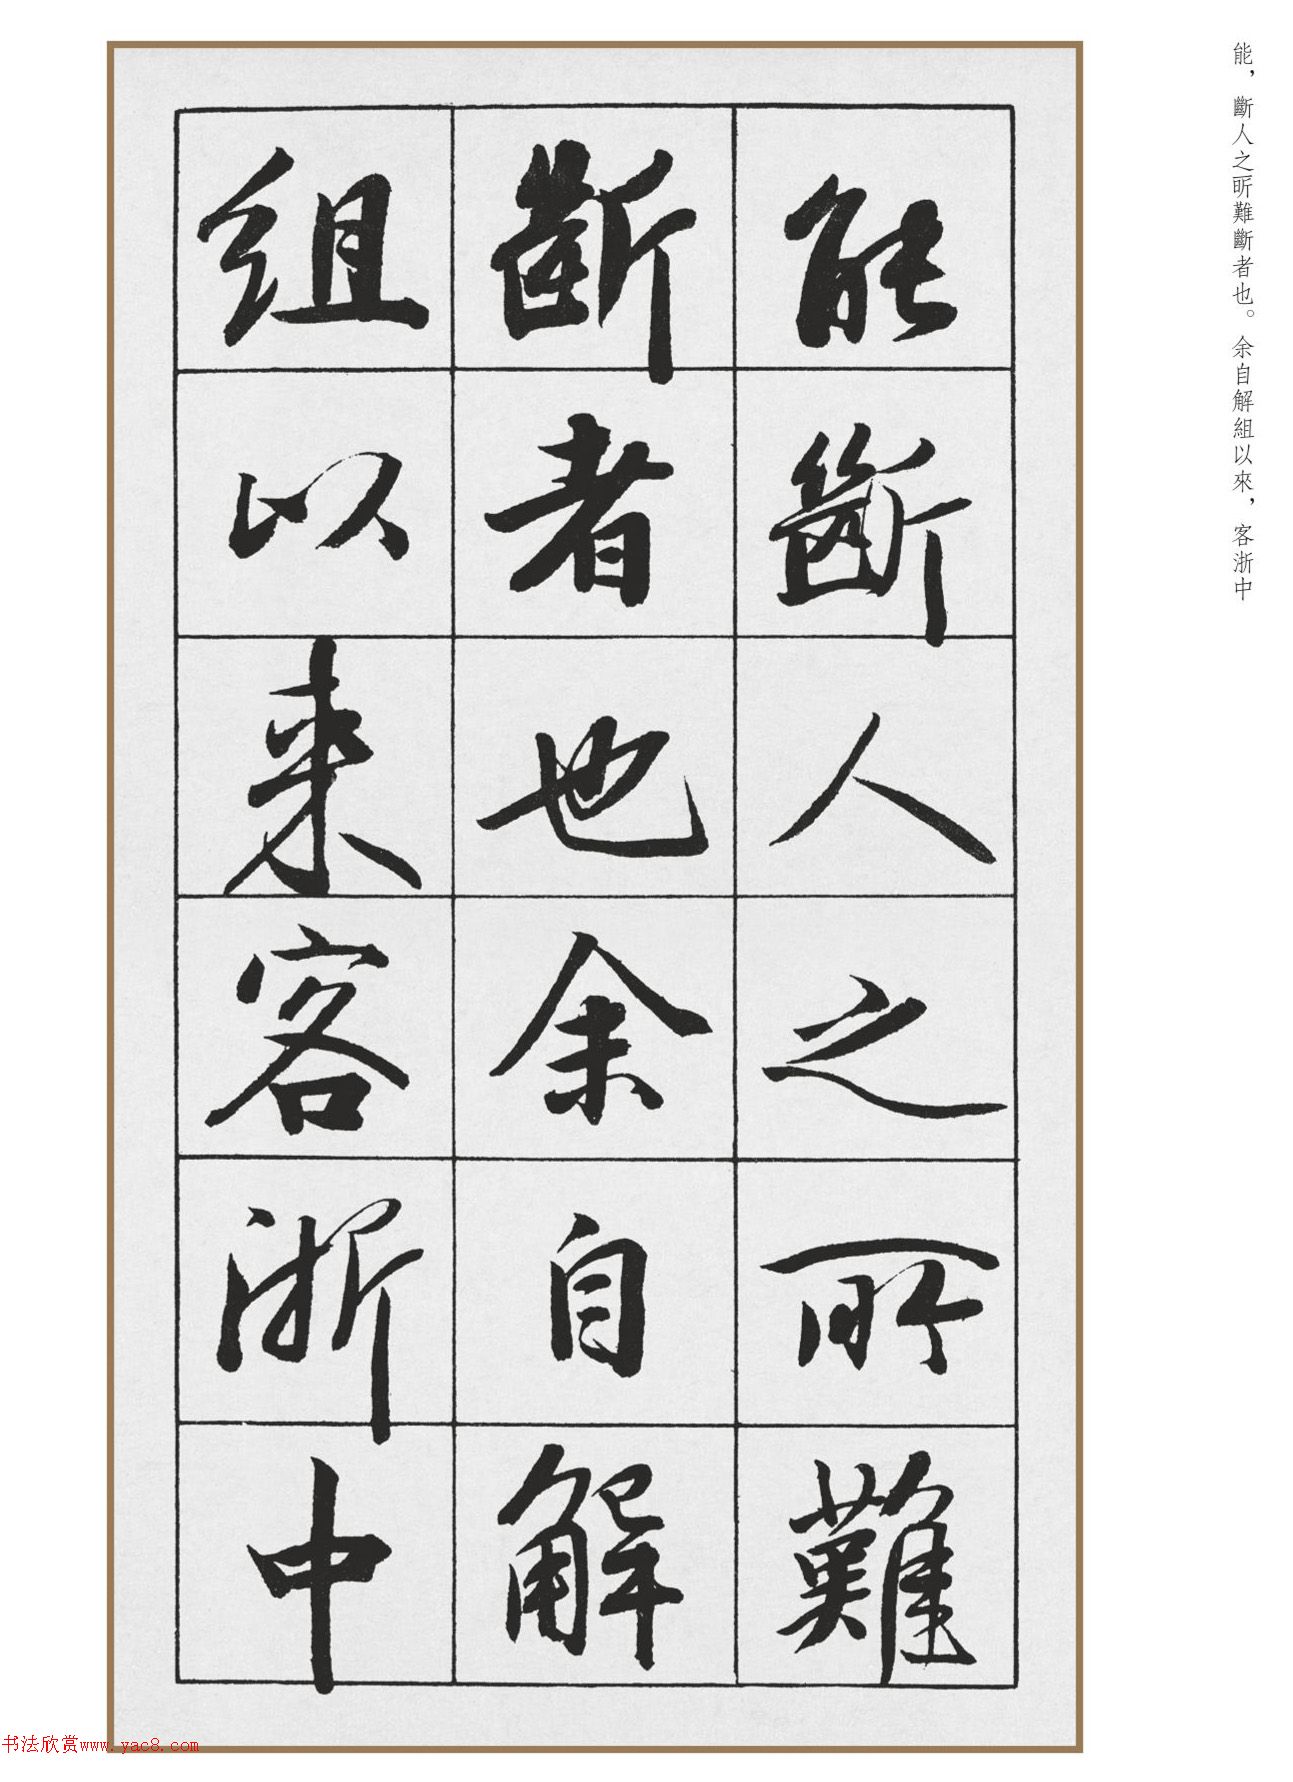 能，斷人之所難斷者也。余自解組以來，客浙中
能斷人之所難
斷者也余自解
組以来客浙中
书法欣赏www.yac8.com